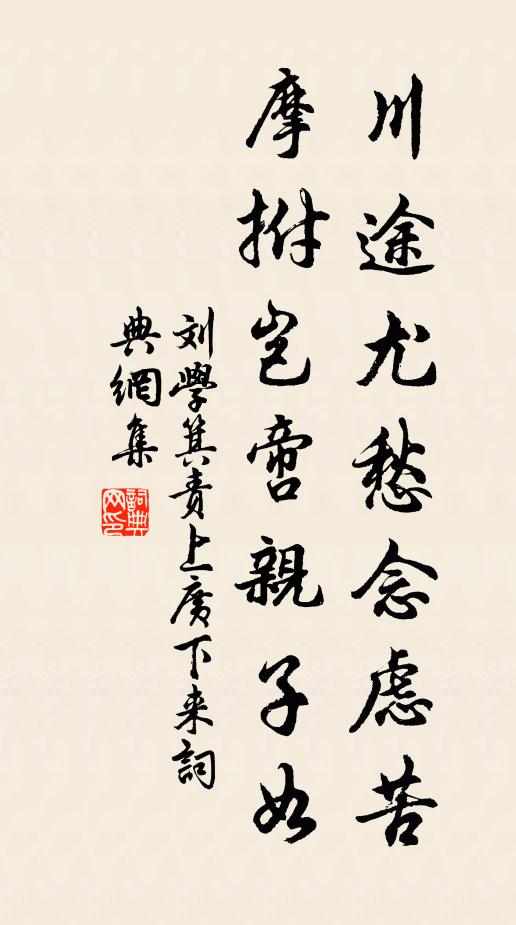 川途尤愁念慮苦
摩拊豈啻親子如
刘學箕青上廣下来詞
典網集
詞典网印